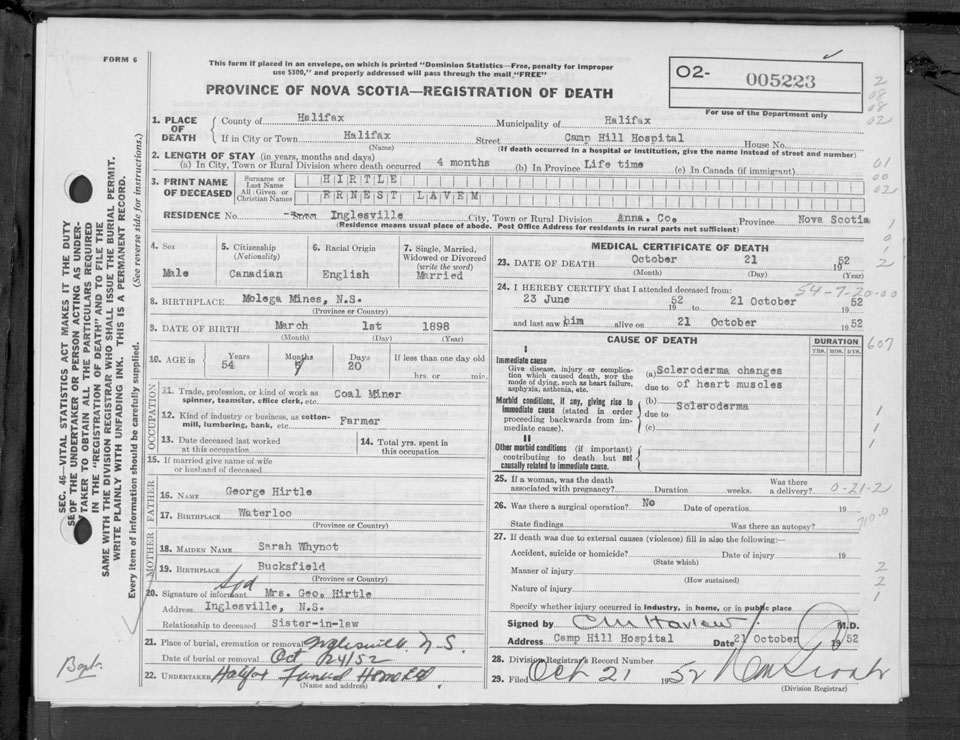 FORM 6
This form if placed in an envelope, on which is printed "Dominion Statistics—Free, penalty for improper
use $300," and properly addressed will pass through the mail "FREE"
PROVINCE OF NOVA SCOTIA—REGISTRATION OF DEATH
O2- 005223
For use of the Department only
2
08
08
02
1. PLACE OF DEATH
County of Halifax Municipality of Halifax
If in City or Town Halifax Street Camp Hill Hospital House No.
(Name) (If death occurred in a hospital or institution, give the name instead of street and number)
2. LENGTH OF STAY (in years, months and days)
(a) In City, Town or Rural Division where death occurred 4 months (b) In Province Life time (c) In Canada (if immigrant)
01
00
02
3. PRINT NAME OF DECEASED
Surname or Last Name HIRTLE
All Given or Christian Names ERNEST LAVEM
RESIDENCE No. Inglesville City, Town or Rural Division Anna. Co. Province Nova Scotia
(Residence means usual place of abode. Post Office Address for residents in rural parts not sufficient)
1
0
1
2
4. Sex Male
5. Citizenship (Nationality) Canadian
6. Racial Origin English
7. Single, Married, Widowed or Divorced (write the word) Married
8. BIRTHPLACE Molega Mines, N.S.
(Province or Country)
9. DATE OF BIRTH March 1st 1898
(Month) (Day) (Year)
10. AGE in Years 54 Months 7 Days 20 If less than one day old hrs. or min.
OCCUPATION
11. Trade, profession, or kind of work as spinner, teamster, office clerk, etc. Coal Miner
12. Kind of industry or business, as cotton-mill, lumbering, bank, etc. Farmer
13. Date deceased last worked at this occupation
14. Total yrs. spent in this occupation
15. If married give name of wife or husband of deceased
FATHER
16. NAME George Hirtle
17. BIRTHPLACE Waterloo
(Province or Country)
MOTHER
18. MAIDEN NAME Sarah Whynot
19. BIRTHPLACE Bucksfield
(Province or Country)
20. Signature of informant Sgd Mrs. Geo. Hirtle
Address Inglesville, N.S.
Relationship to deceased Sister-in-law
21. Place of burial, cremation or removal Inglesville N.S.
Date of burial or removal Oct 24/52
22. UNDERTAKER Halifax Funeral Home Ltd
(Name and address)
MEDICAL CERTIFICATE OF DEATH
23. DATE OF DEATH October 21 1952
(Month) (Day) (Year)
24. I HEREBY CERTIFY that I attended deceased from: 54-7-20-00
23 June 1952 to 21 October 1952
and last saw him alive on 21 October 1952
CAUSE OF DEATH
DURATION
YRS. MOS. DYS.
607
I
Immediate cause
Give disease, injury or complication which caused death, nor the mode of dying, such as heart failure, asphyxia, asthenia, etc.
(a) Scleroderma changes
due to of heart muscles
Morbid conditions, if any, giving rise to immediate cause (stated in order proceeding backwards from immediate cause).
(b) Scleroderma
due to
(c)
II
Other morbid conditions (if important) contributing to death but not causally related to immediate cause.
1
1
1
25. If a woman, was the death associated with pregnancy? Duration weeks. Was there a delivery? 0-21-2
26. Was there a surgical operation? No Date of operation 19
State findings Was there an autopsy?
710.0
27. If death was due to external causes (violence) fill in also the following:—
Accident, suicide or homicide? Date of injury 19
(State which)
Manner of injury
(How sustained)
Nature of injury
2
2
1
Specify whether injury occurred in industry, in home, or in public place
Signed by M.D.
Address Camp Hill Hospital Date 21 October 1952
28. Division Registrar's Record Number
29. Filed Oct 21 1952
(Division Registrar)
SEC. 46—VITAL STATISTICS ACT MAKES IT THE DUTY
OF THE UNDERTAKER OR PERSON ACTING AS UNDER-
TAKER TO OBTAIN ALL THE PARTICULARS REQUIRED
IN THE "REGISTRATION OF DEATH" AND TO FILE THE
SAME WITH THE DIVISION REGISTRAR WHO SHALL ISSUE THE BURIAL PERMIT.
WRITE PLAINLY WITH UNFADING INK. THIS IS A PERMANENT RECORD.
Every item of information should be carefully supplied. (See reverse side for instructions.)